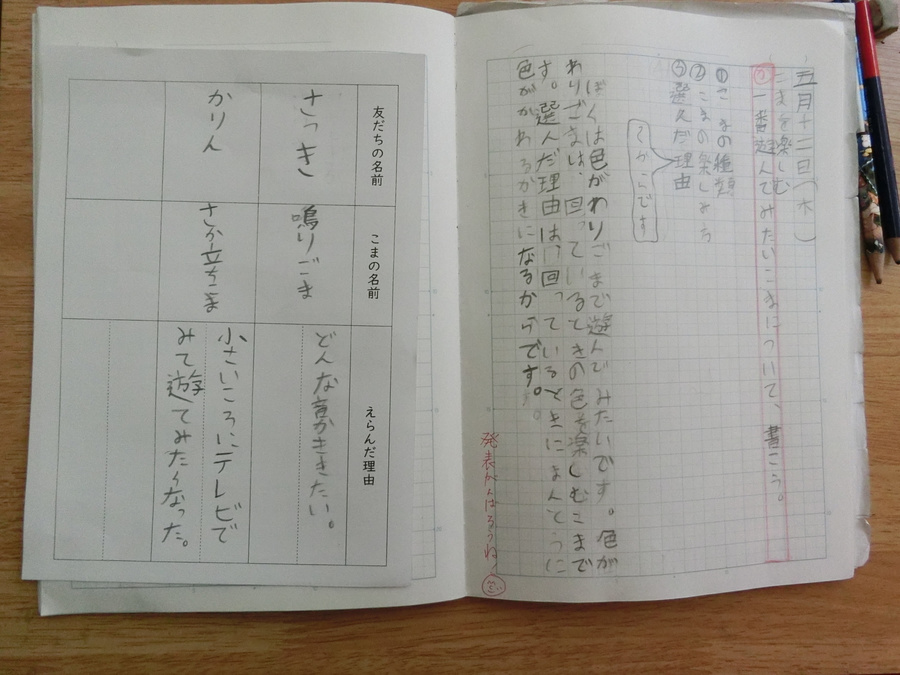 五月十二日(木)
こまを楽しむ
一番遊んでみたいこまについて、書こう。
①こまの種類
②こまの楽しみ方
③選んだ理由
てからです
ぼくは色がわりごまで遊んでみたいです。色が
わりごまは、回っているときの色を楽しむこまで
す。選んだ理由は、回っているときにほんとうに
色がかわるかきになるからです。
発表がんばろうね。
友だちの名前
こまの名前
えらんだ理由
さつき
鳴りごま
どんな音かききたい。
かりん
さか立ちごま
小さいころにテレビで
みて遊てみたくなった。